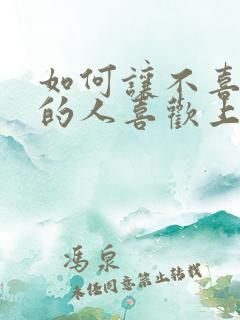 如何讓不喜
的人喜歡上
冯泉
未经同意禁止转载